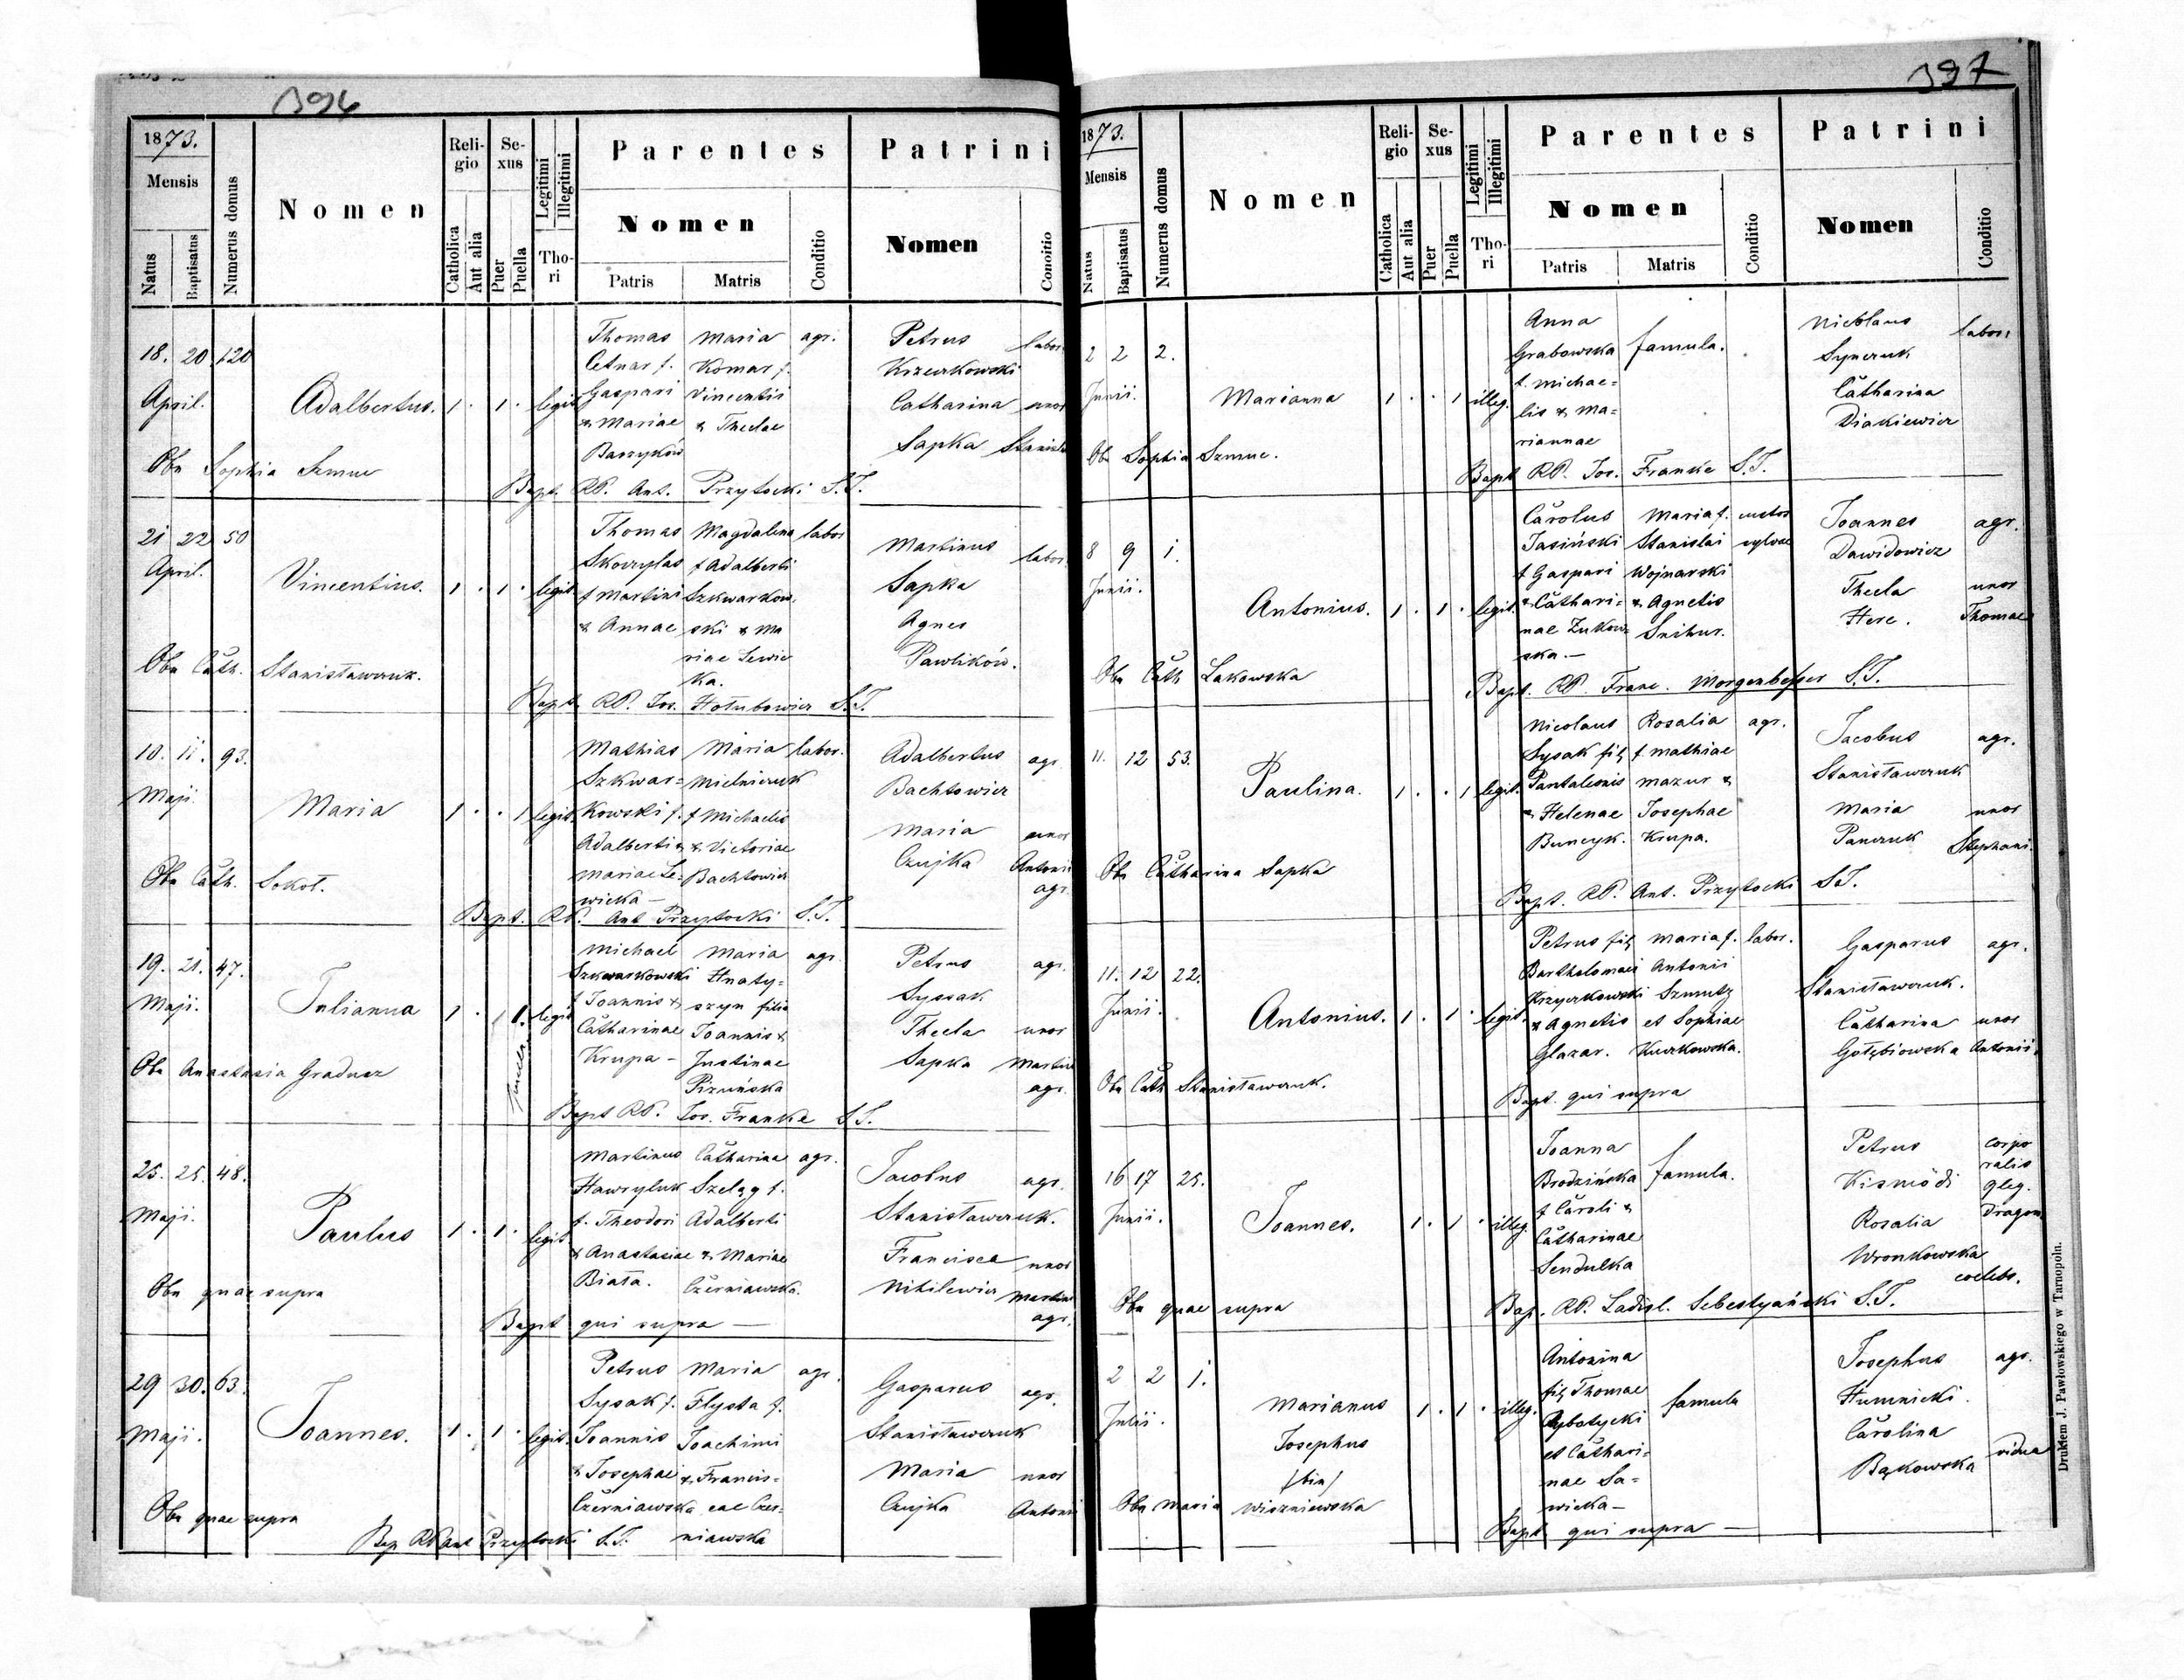 396
1873.
Mensis
Natus
Baptisatus
Numerus domus
Nomen
Religio
Catholica
Aut alia
Sexus
Puer
Puella
Legitimi
Illegitimi
Thori
Parentes
Nomen
Patris
Matris
Conditio
Patrini
Nomen
Conditio
18. 20 120
April.
Adalbertus. 1 . 1 . legit
Thomas
Cetnar f.
Gaspari
& Mariae
Baszyków
Maria
Komar f.
Vincentii
& Theclae
agr.
Petrus labor.
Krzewkowski
Catharina uxor
Sapka
Obs Sophia Szmuc
Bapt. RP. Ant. Przytocki S.J.
21 22 50
April.
Vincentius. 1 . 1 . legit
Thomas
Skoczylas
f Martini
& Annae
Magdalena
f Adalberti
Szkwarkow.
ski & Ma
riae Lewic
ka.
labor
Martinus labor.
Sapka
Agnes
Pawlików.
Obs Cath. Stanisławczuk.
Bapt RP. Jos. Hołubowicz S.J.
10. 11. 93.
Maji
Maria 1 . . 1 legit.
Mathias
Szkwar=
kowski f.
Adalberti &
Mariae Le-
wicka —
Maria
Mielniczuk
f Michaelis
& Victoriae
Bachtowicz
labor.
Adalbertus agr
Bachtowicz
Maria uxor
Czujka Antonii
agr.
Obs Cath. Sokoł.
Bapt. RP. Ant Przytocki S.J.
19. 21. 47.
Maji.
Julianna 1 . 1. legit
Puella
Michael
Szkwarkowski
f Joannis &
Catharinae
Krupa —
Maria
Hnaty=
szyn filia
Joannis &
Justinae
Pizuńska
agr.
Petrus agr.
Syssak
Thecla uxor
Sapka Martini
agr.
Obs Anastasia Gradusz
Bapt RP. Jos. Franke S.J.
25. 25. 48.
Maji.
Paulus 1 . 1 . legit
Martinus
Hawryluk
f. Theodori
& Anastasiae
Biała.
Catharina
Szeląg f.
Adalberti
& Mariae
Czerniawska.
agr.
Jacobus agr.
Stanisławczuk.
Francisca uxor
Nikilewicz Martini
agr.
Obs quae supra
Bapt qui supra —
29 30. 63.
Maji.
Joannes. 1 . 1 . legit.
Petrus
Sysak f.
Joannis
& Josephae
Czerniawska
Maria
Flysta f.
Joachimi
& Francis=
cae Czer=
niawska
agr.
Gasparus agr.
Stanisławczuk
Maria uxor
Czujka Antonii
Obs quae supra
Bap RP Ant Przytocki S.J.
397
1873.
Mensis
Natus
Baptisatus
Numerus domus
Nomen
Religio
Catholica
Aut alia
Sexus
Puer
Puella
Legitimi
Illegitimi
Thori
Parentes
Nomen
Patris
Matris
Conditio
Patrini
Nomen
Conditio
2 2 2.
Junii.
Marianna 1 . . 1 illeg.
Anna
Grabowska famula.
f. Michae=
lis & Ma=
riannae
Nicolaus labor.
Synczuk
Catharina
Diakiewicz
Obs Sophia Szmuc.
Bapt RP. Jos. Franke S.J.
8 9 1.
Junii.
Antonius. 1 . 1 . legit.
Carolus
Jasiński
f Gaspari
& Cathari=
nae Zukow=
ska.—
Maria f.
Stanislai
Wojnarski
& Agnetis
Snihur.
custos
sylvae
Joannes agr.
Dawidowicz
Thecla uxor
Herc. Thomae
Obs Cath Lakowska
Bapt. RP. Franc. Morgenbesser S.J.
11. 12 53.
Paulina. 1 . . 1 legit.
Nicolaus
Sysak fil
Pantaleonis
& Helenae
Buncyk.
Rosalia
f. Mathiae
Mazur &
Josephae
Krupa.
agr.
Jacobus agr.
Stanisławczuk
Maria uxor
Panczuk Stephani.
Obs Catharina Sapka
Bapt. RP. Ant. Przytocki S.J.
11. 12 22.
Junii.
Antonius. 1 . 1 . legit.
Petrus fil
Bartholomaei
Krzyczkowski
& Agnetis
Glazar.
Maria f.
Antonii
Szmutz
et Sophiae
Kuczkowska.
labor.
Gasparus agr.
Stanisławczuk.
Catharina uxor
Gołębiowska Antonii.
Obs Cath Stanisławczuk.
Bapt. qui supra
16 17 25.
Junii.
Joannes. 1 . 1 . illeg
Joanna
Brodzińska famula.
f Caroli &
Catharinae
Sendulka
Petrus corpo
ralis
Kismödi 9leg.
Dragon
Rosalia
Wronkowska
coelebs.
Obs quae supra
Bap. RP. Ladisl. Sebestyański S.J.
2 2 1.
Julii.
Marianus 1 . 1 . illeg.
Josephus
/bin/
Antonina
fil Thomae
Rybotycki famula
et Cathari=
nae Sa=
wicka—
Josephus agr.
Humnicki.
Carolina
Bąkowska vidua
Obs Maria Wiszniewska
Bapt qui supra —
Drukiem J. Pawłowskiego w Tarnopolu.